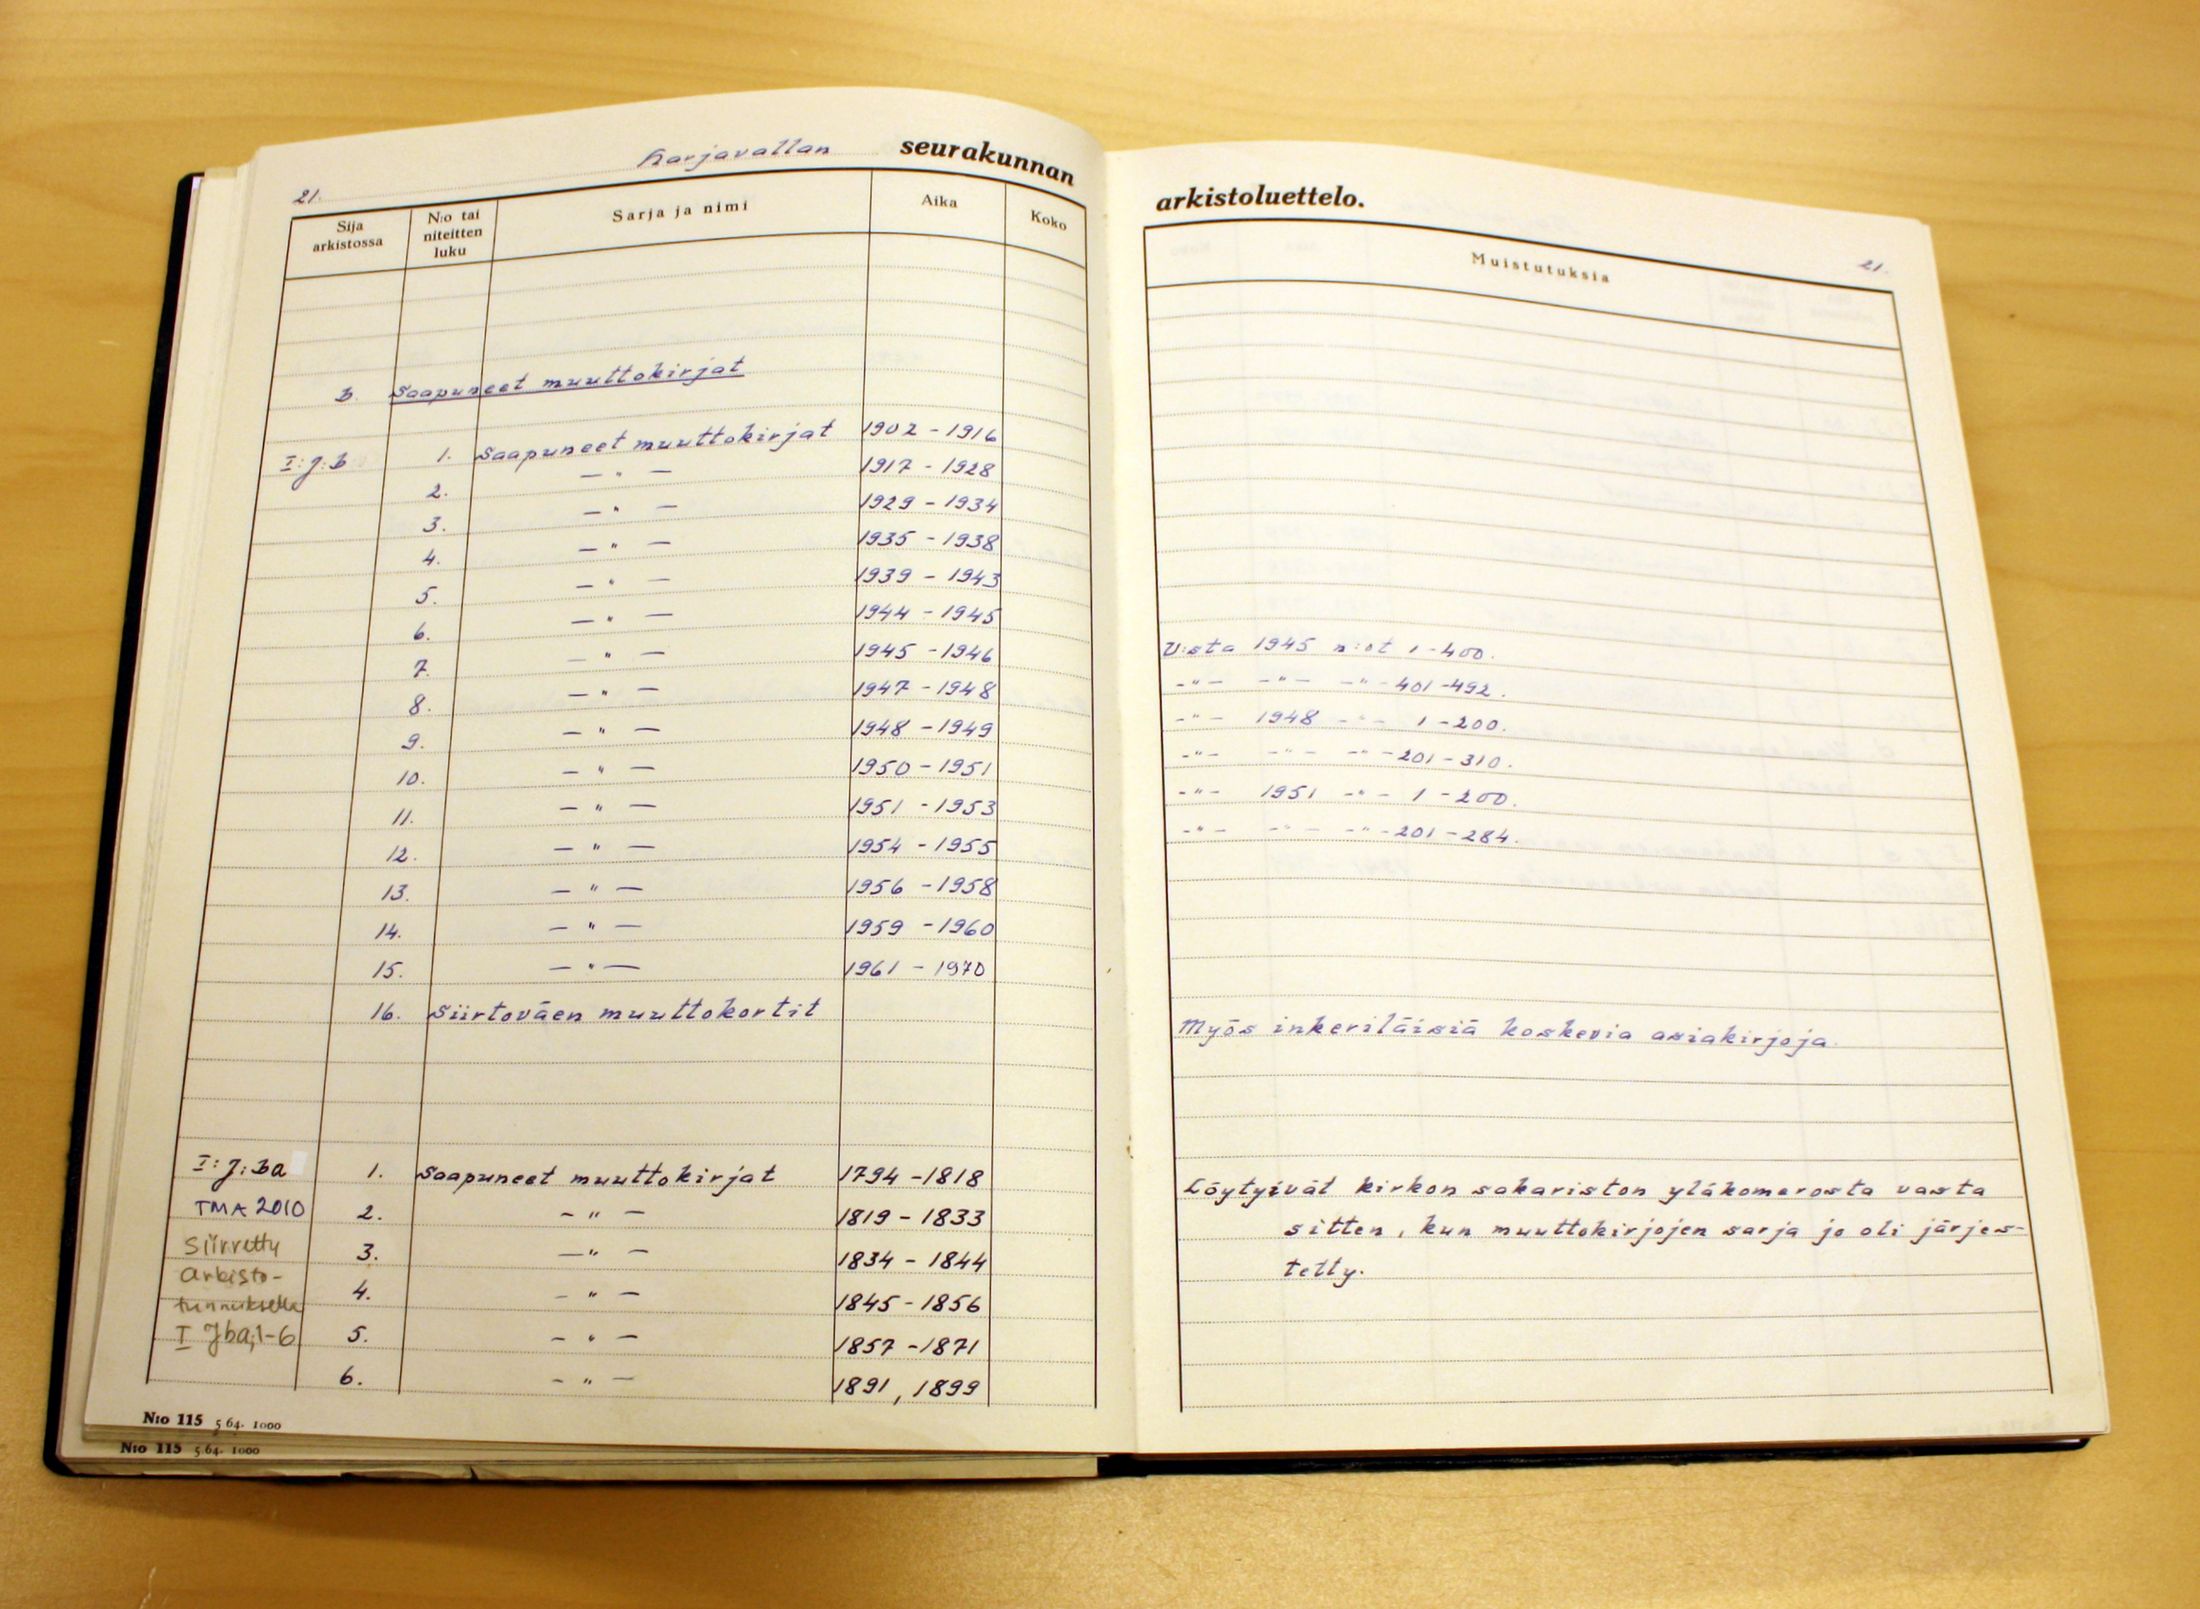 Harjavallan seurakunnan
21.
Sija arkistossa N:o tai niteitten luku Sarja ja nimi Aika Koko
b. Saapuneet muuttokirjat
I:J:b 1. Saapuneet muuttokirjat 1902 - 1916
2. — " — 1917 - 1928
3. — " — 1929 - 1934
4. — " — 1935 - 1938
5. — " — 1939 - 1943
6. — " — 1944 - 1945
7. — " — 1945 - 1946
8. — " — 1947 - 1948
9. — " — 1948 - 1949
10. — " — 1950 - 1951
11. — " — 1951 - 1953
12. — " — 1954 - 1955
13. — " — 1956 - 1958
14. — " — 1959 - 1960
15. — " — 1961 - 1970
16. Siirtoväen muuttokortit
I:J:ba 1. Saapuneet muuttokirjat 1794 - 1818
TMA 2010 2. — " — 1819 - 1833
Siirretty 3. — " — 1834 - 1844
arkisto-
tunnuksella 4. — " — 1845 - 1856
I Jba;1-6 5. — " — 1857 - 1871
6. — " — 1891, 1899
N:o 115 5 64. 1000
N:o 115 5.64. 1000
arkistoluettelo.
21.
Muistutuksia
V:sta 1945 n:ot 1-400.
-"- -"- -"- 401-492.
-"- 1948 -"- 1-200.
-"- -"- -"- 201-310.
-"- 1951 -"- 1-200.
-"- -"- -"- 201-284.
Myös inkeriläisiä koskevia asiakirjoja.
Löytyivät kirkon sakariston yläkomerosta vasta
sitten, kun muuttokirjojen sarja jo oli järjes-
tetty.